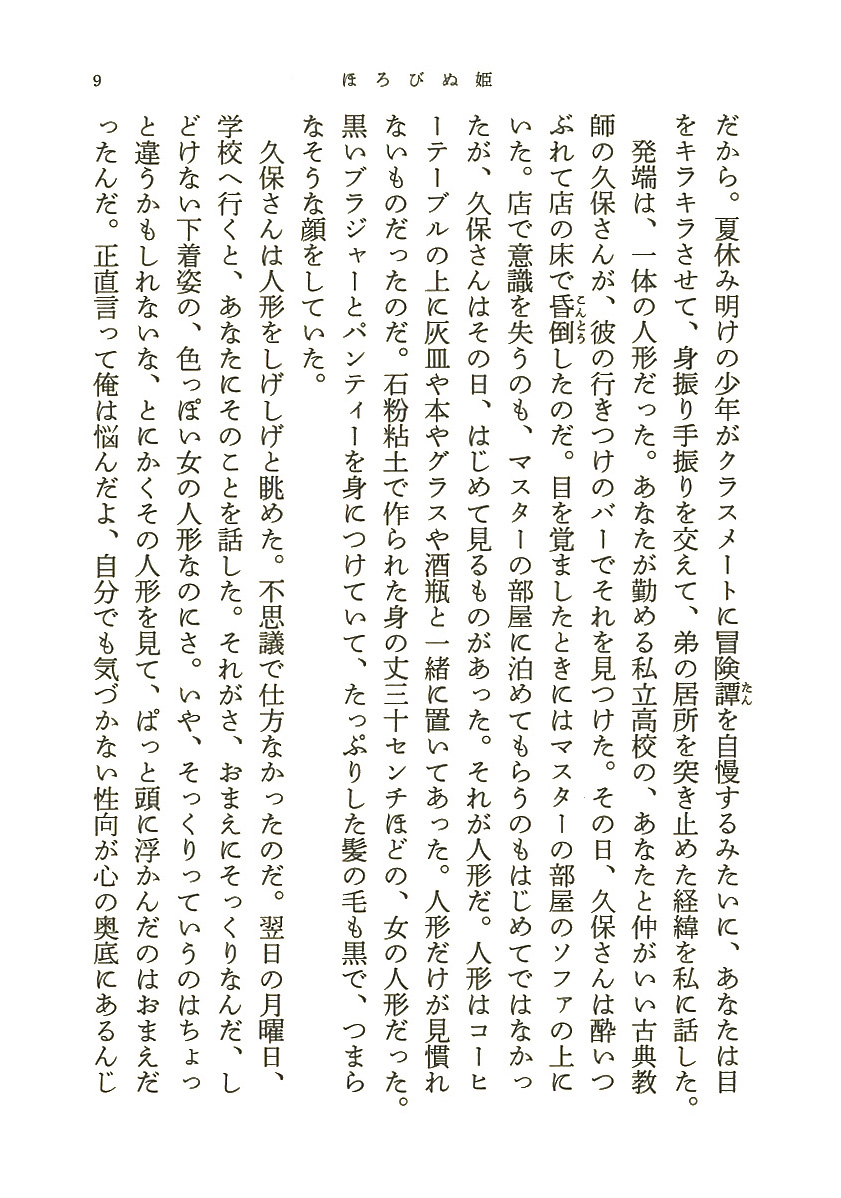 9
ほろびぬ姫
だから。夏休み明けの少年がクラスメートに冒険譚たんを自慢するみたいに、あなたは目
をキラキラさせて、身振り手振りを交えて、弟の居所を突き止めた経緯を私に話した。
発端は、一体の人形だった。あなたが勤める私立高校の、あなたと仲がいい古典教
師の久保さんが、彼の行きつけのバーでそれを見つけた。その日、久保さんは酔いつ
ぶれて店の床で昏倒こんとうしたのだ。目を覚ましたときにはマスターの部屋のソファの上に
いた。店で意識を失うのも、マスターの部屋に泊めてもらうのもはじめてではなかっ
たが、久保さんはその日、はじめて見るものがあった。それが人形だ。人形はコーヒ
ーテーブルの上に灰皿や本やグラスや酒瓶と一緒に置いてあった。人形だけが見慣れ
ないものだったのだ。石粉粘土で作られた身の丈三十センチほどの、女の人形だった。
黒いブラジャーとパンティーを身につけていて、たっぷりした髪の毛も黒で、つまら
なそうな顔をしていた。
久保さんは人形をしげしげと眺めた。不思議で仕方なかったのだ。翌日の月曜日、
学校へ行くと、あなたにそのことを話した。それがさ、おまえにそっくりなんだ、し
どけない下着姿の、色っぽい女の人形なのにさ。いや、そっくりっていうのはちょっ
と違うかもしれないな、とにかくその人形を見て、ぱっと頭に浮かんだのはおまえだ
ったんだ。正直言って俺は悩んだよ、自分でも気づかない性向が心の奥底にあるんじ